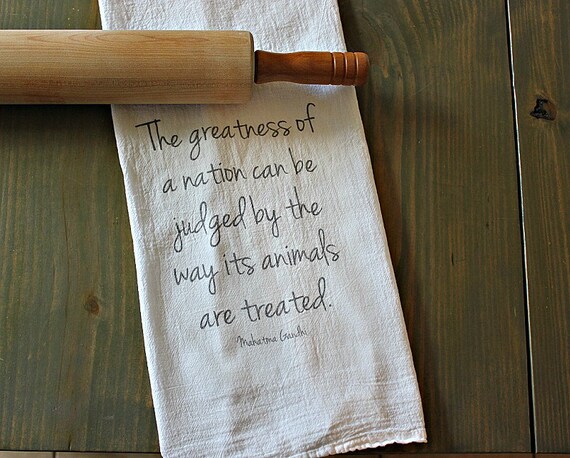 The greatness of
a nation can be
judged by the
way its animals
are treated.
Mahatma Gandhi